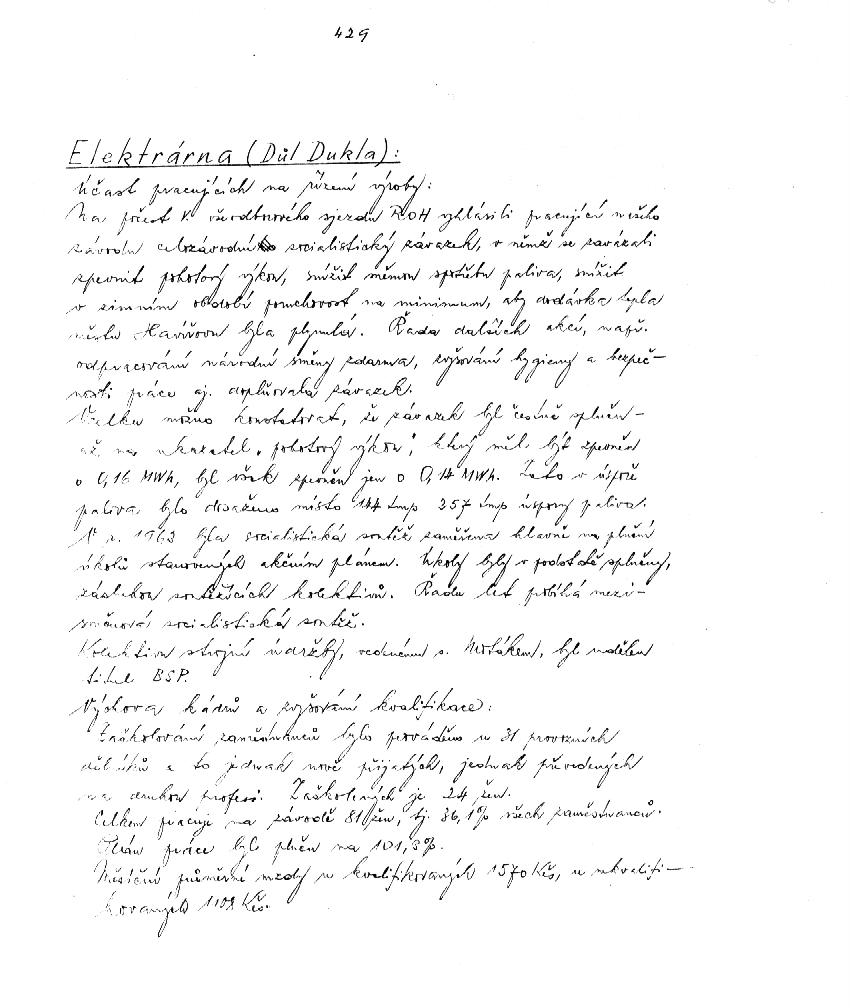 429
Elektrárna (Důl Dukla):
Účast pracujících na řízení výroby:
Na počest V. všeodborového sjezdu ROH vyhlásili pracující našeho
závodu celozávodní socialistický závazek, v němž se zavázali
zpevnit pohotový výkon, snížit měrnou spotřebu paliva, snížit
v zimním období poruchovost na minimum, aby dodávka tepla
městu Havířovu byla plynulá. Řada dalších akcí, např.
odpracování národní směny zdarma, zvyšování hygieny a bezpeč-
nosti práce aj. doplňovala závazek.
Celkem možno konstatovat, že závazek byl čestně splněn -
až na ukazatel "pohotový výkon", který měl být zpevněn
o 0,16 MWh, byl však zpevněn jen o 0,14 MWh. Zato v úspoře
paliva bylo dosaženo místo 144 tmp 357 tmp úspory paliva.
V r. 1963 byla socialistická soutěž zaměřena hlavně na plnění
úkolů stanovených akčním plánem. Úkoly byly v podstatě splněny,
zásluhou soutěžících kolektivů. Řadu let probíhá mezi-
směnová socialistická soutěž.
Kolektivu strojní údržby, vedenému s. Motákem, byl udělen
titul BSP.
Výchova kádrů a zvyšování kvalifikace:
Zaškolování zaměstnanců bylo prováděno u 31 provozních
dělníků a to jednak nově přijatých, jednak převedených
na druhou profesi. Zaškolených je 24 žen.
Celkem pracuje na závodě 81 žen, tj. 36,1% všech zaměstnanců.
Plán práce byl plněn na 101,3%.
Měsíční průměrné mzdy u kvalifikovaných 1570 Kčs, u nekvalifi-
kovaných 1108 Kčs.